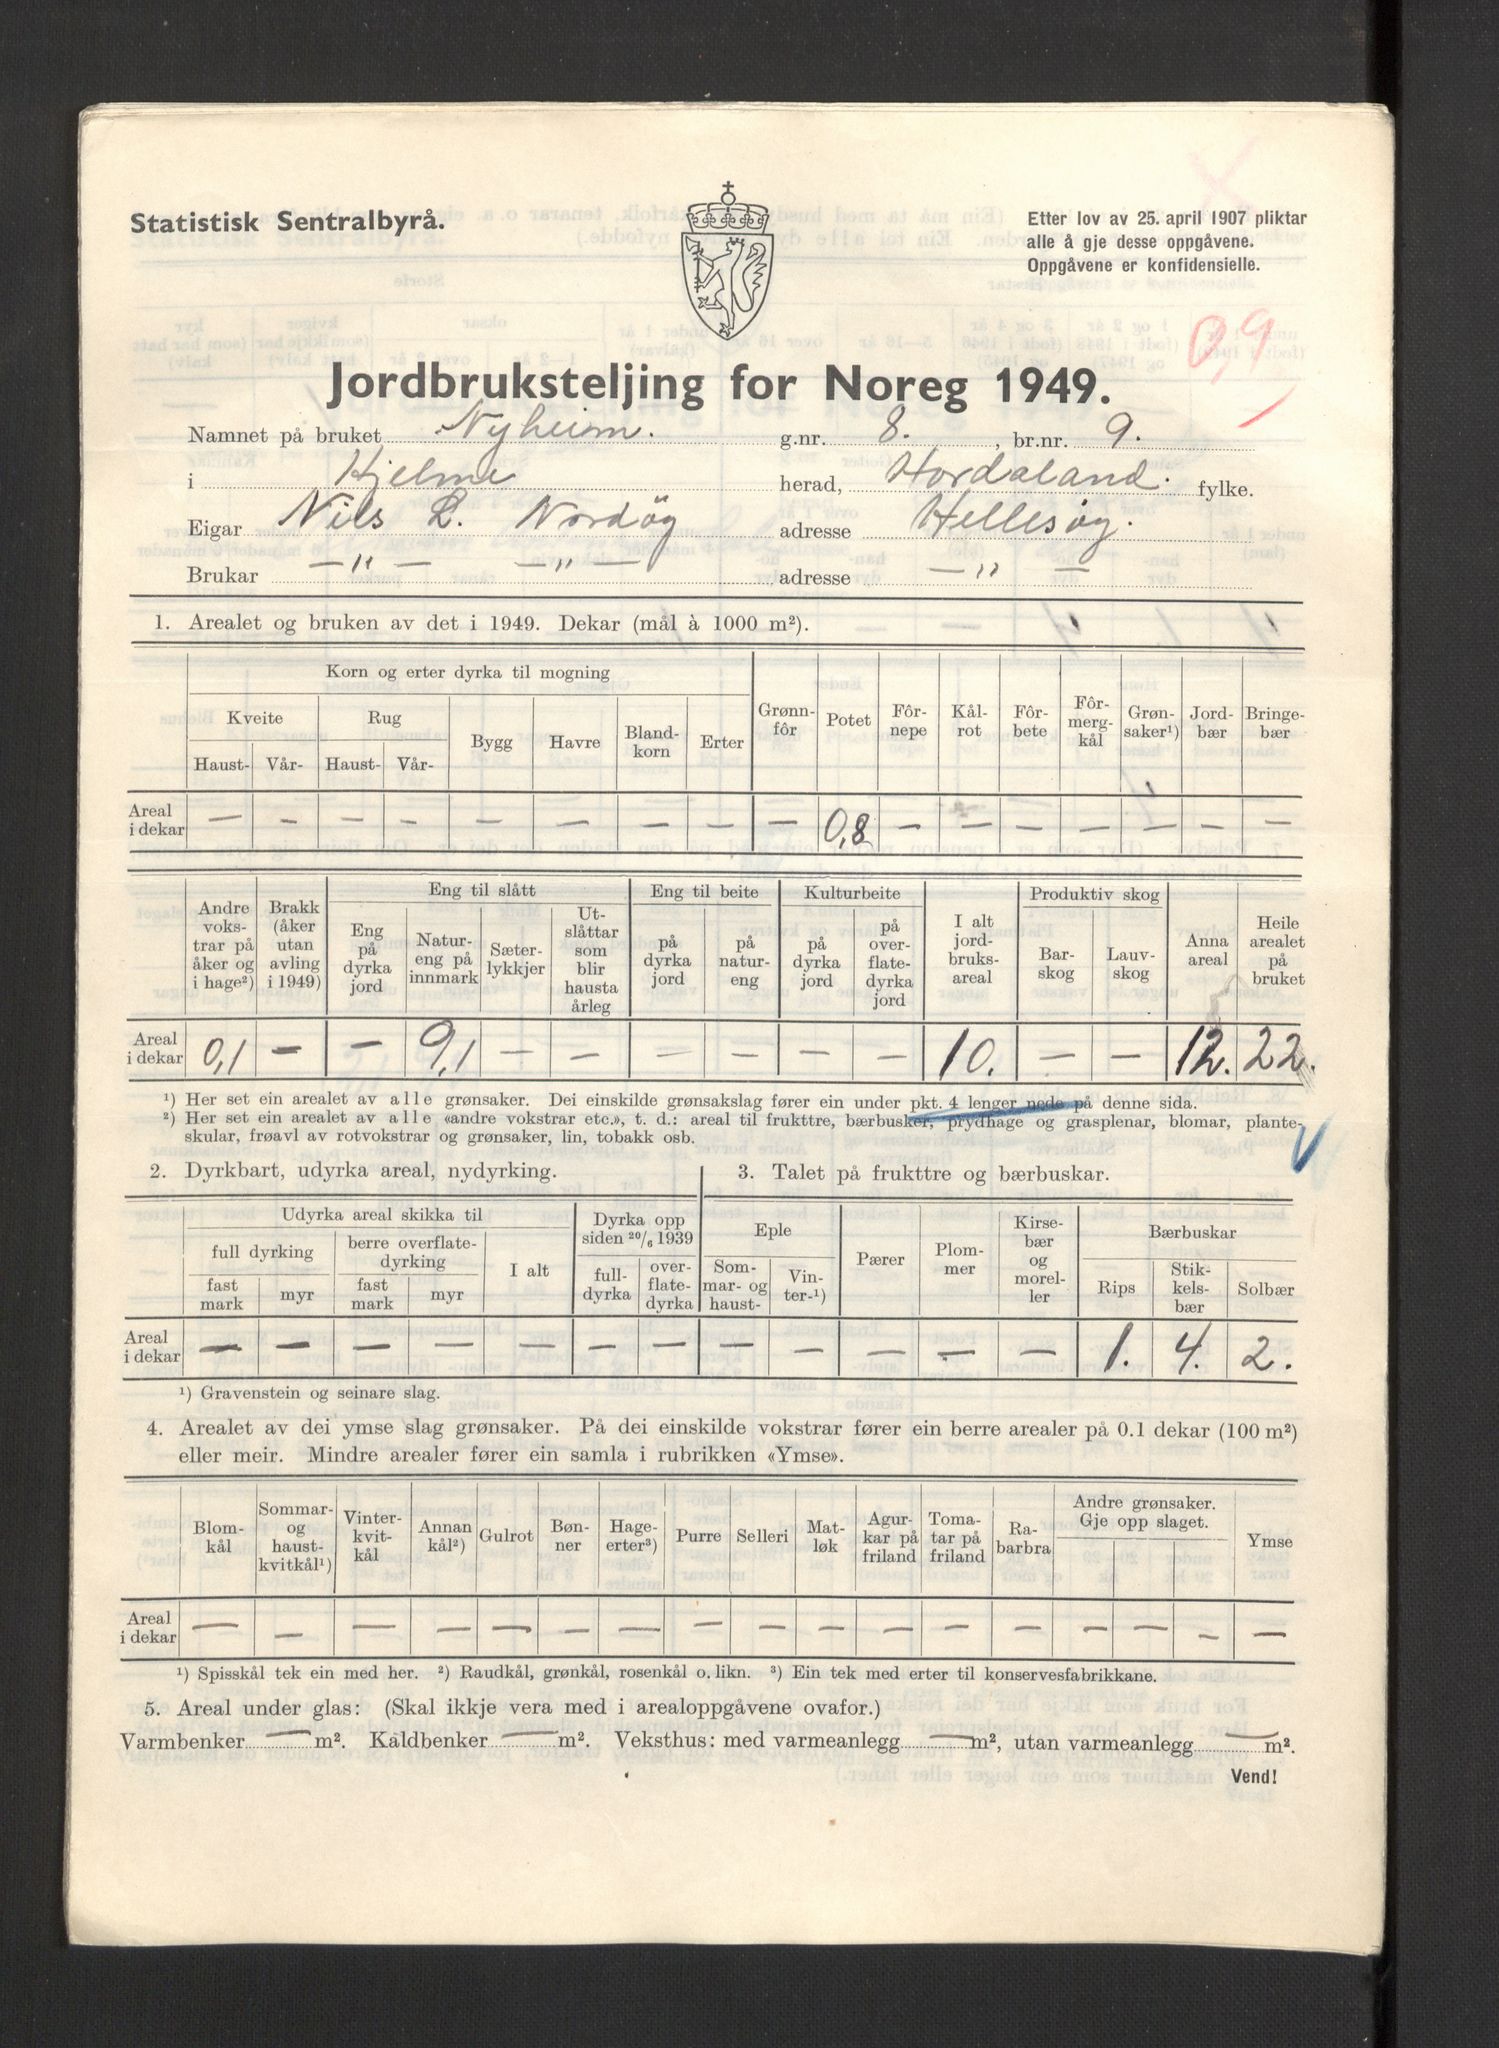 Statistisk Sentralbyrå.
Etter lov av 25. april 1907 pliktar
alle å gje desse oppgåvene.
Oppgåvene er konfidensielle.
0,9
Jordbruksteljing for Noreg 1949.
Namnet på bruket Nyheim. g.nr. 8. , br.nr. 9.
i Hjelme herad, Hordaland. fylke.
Eigar Nils L. Nordøy adresse Hellesøy.
Brukar — " — — " — adresse — " —
1. Arealet og bruken av det i 1949. Dekar (mål à 1000 m²).
Korn og erter dyrka til mogning
Kveite Rug Bygg Havre Bland-korn Erter Grønn-fôr Potet Fôr-nepe Kål-rot Fôr-bete Fôr-mergkål Grøn-saker¹) Jord-bær Bringe-bær
Haust- Vår- Haust- Vår-
Areal i dekar — — — — — — — — — 0,8 — — — — — — —
Eng til slått Eng til beite Kulturbeite Produktiv skog
Andre voks-trar på åker og i hage²) Brakk (åker utan avling i 1949) Eng på dyrka jord Natur-eng på innmark Sæter-lykkjer Ut-slåttar som blir hausta årleg på dyrka jord på natur-eng på dyrka jord på over-flate-dyrka jord I alt jord-bruks-areal Bar-skog Lauv-skog Anna areal Heile arealet på bruket
Areal i dekar 0,1 — — 9,1 — — — — — — 10. — — 12. 22.
¹) Her set ein arealet av alle grønsaker. Dei einskilde grønsakslag fører ein under pkt. 4 lenger nede på denne sida.
²) Her set ein arealet av alle «andre vokstrar etc.», t. d.: areal til frukttre, bærbusker, prydhage og grasplenar, blomar, plante-
skular, frøavl av rotvokstrar og grønsaker, lin, tobakk osb.
2. Dyrkbart, udyrka areal, nydyrking.
Udyrka areal skikka til Dyrka opp siden 20/6 1939
full dyrking berre overflate-dyrking I alt full-dyrka over-flate-dyrka
fast mark myr fast mark myr
Areal i dekar — — — — — — —
¹) Gravenstein og seinare slag.
3. Talet på frukttre og bærbuskar.
Eple Pærer Plom-mer Kirse-bær og morel-ler Bærbuskar
Som-mar- og haust- Vin-ter-¹) Rips Stik-kels-bær Solbær
— — — — — 1. 4. 2.
4. Arealet av dei ymse slag grønsaker. På dei einskilde vokstrar fører ein berre arealer på 0.1 dekar (100 m²)
eller meir. Mindre arealer fører ein samla i rubrikken «Ymse».
Blom-kål Sommar- og haust-kvitkål¹) Vinter-kvit-kål Annan kål²) Gulrot Bøn-ner Hage-erter³) Purre Selleri Mat-løk Agur-kar på friland Toma-tar på friland Ra-barbra Andre grønsaker. Gje opp slaget. Ymse
Areal i dekar — — — — — — — — — — — — — — — — —
¹) Spisskål tek ein med her. ²) Raudkål, grønkål, rosenkål o. likn. ³) Ein tek med erter til konservesfabrikkane.
5. Areal under glas: (Skal ikkje vera med i arealoppgåvene ovafor.)
Varmbenker — m². Kaldbenker — m². Veksthus: med varmeanlegg — m², utan varmeanlegg — m².
Vend!